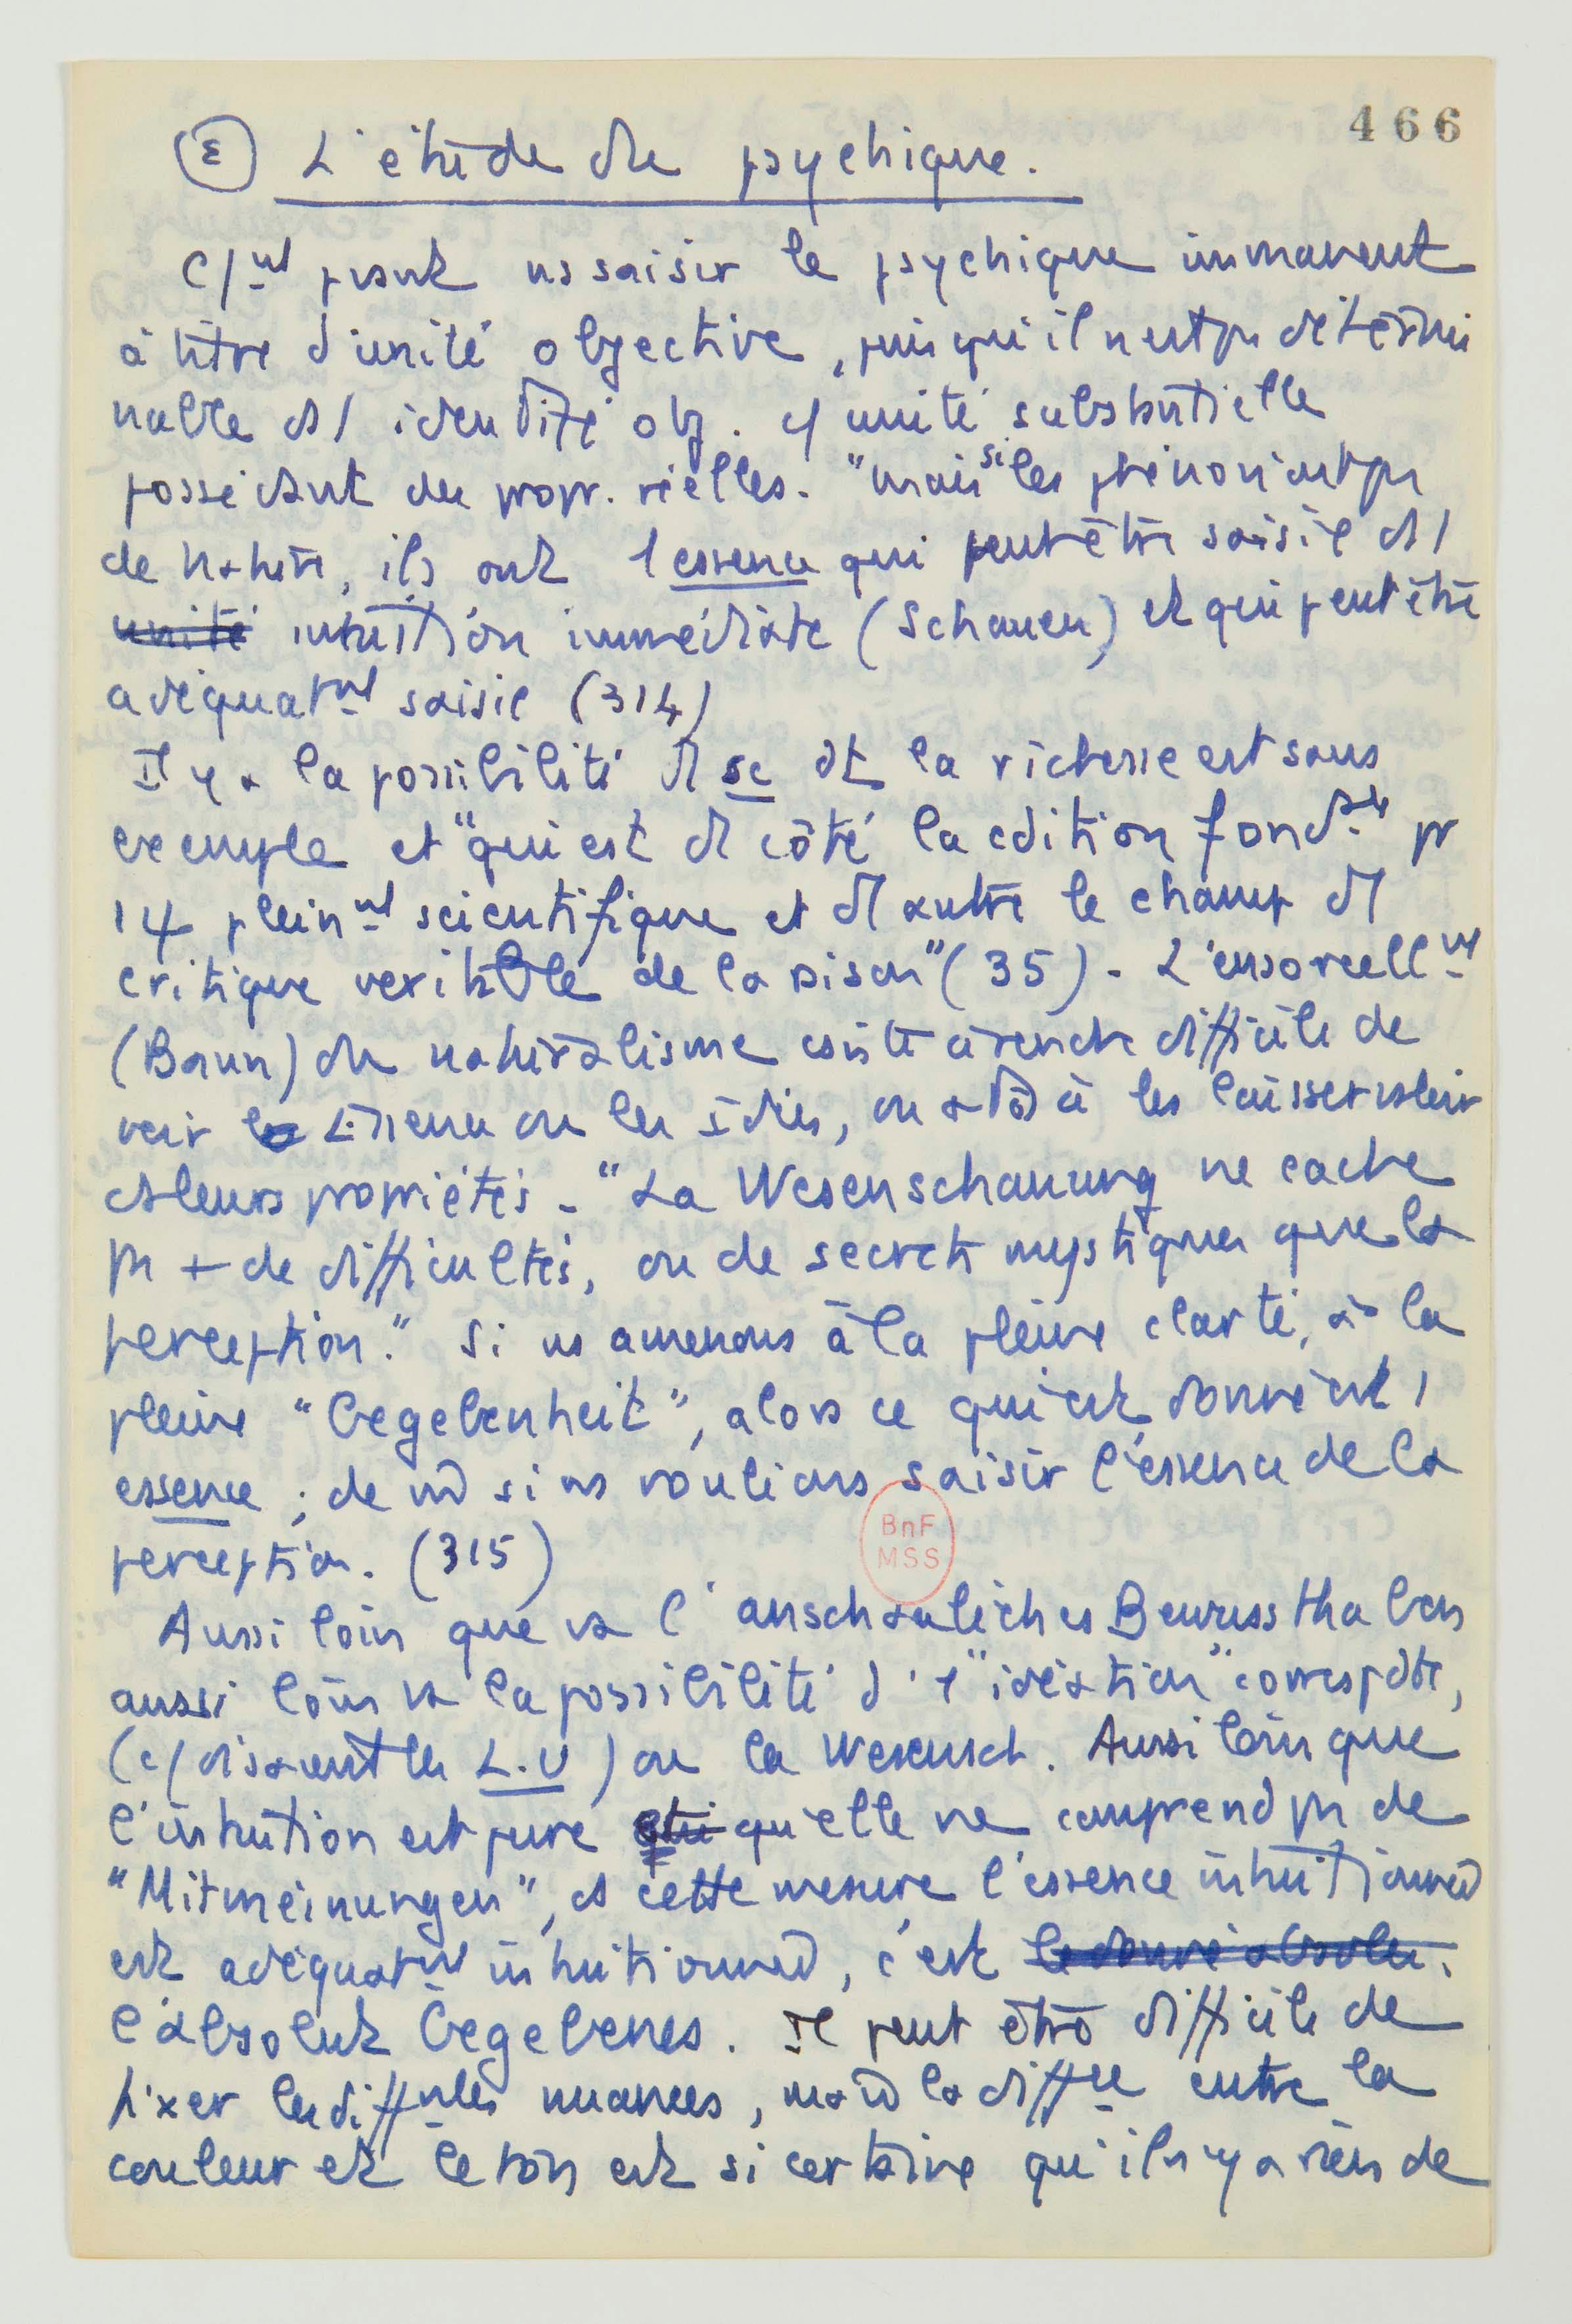 466
ε L'étude du psychique.
c/mt peut ns saisir le psychique immanent
à titre d'unité objective, puisqu'il n'est ps détermi
nable ds / identité obj. c/ unité substantielle
possédant des propr. réelles. "mais si les phéno n'ont ps
de nature, ils ont 1 essence qui peut être saisie ds /
unité intuition immédiate (Schauen) et qui peut être
adéquatmt saisie (314)
Il y a la possibilité d sc dt la richesse est sans
exemple et "qui est d côté la cdition fondtale pr
1 φ pleinmt scientifique et d autre le champ d
critique véritable de la raison" (35). L'ensorcellmt
(Bann) du naturalisme csiste à rendre difficile de
voir le Essence ou les Idées, ou à les laisser valoir
ds leurs propriétés. "La Wesenschauung ne cache
ps + de difficultés, ou de secrets mystiques que la
perception." Si ns amenons à la pleine clarté, à la
pleine "Gegebenheit", alors ce qui est donné est /
essence ; de m̂ si ns voulions saisir l'essence de la
perception. (315)
BnF
MSS
Aussi loin que va l'anschauliches Bewussthaben
aussi loin va la possibilité d'1 "idéation" correspdte,
(c/ disaient les L.U) ou la Wesensch. Aussi loin que
l'intuition est pure qui qu'elle ne comprend ps de
"Mitmeinungen", ds cette mesure l'essence intuitionnée
est adéquatmt intuitionnée, c'est le donné absolu.
l'absolut Gegebenes. Il peut être difficile de
fixer les diffntes nuances, mais la diffce entre la
couleur et le son est si certaine qu'il n'y a rien de